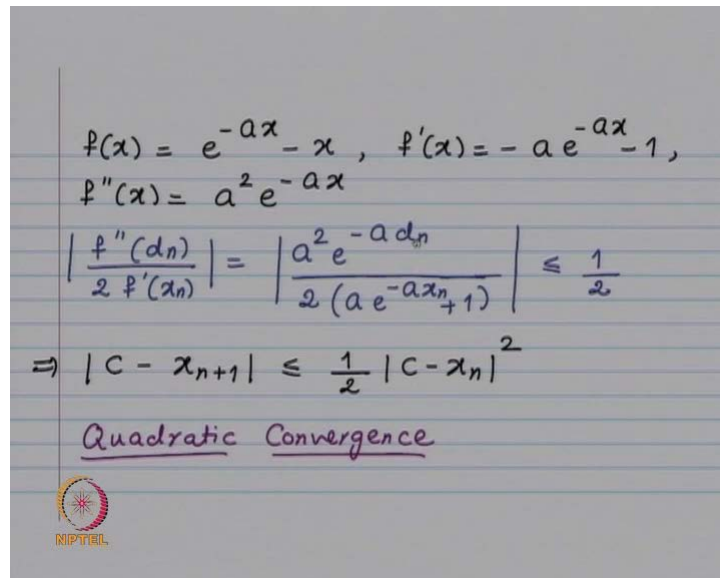 f(x) = e^{-ax} - x , f'(x) = - a e^{-ax} - 1 ,
f''(x) = a^2 e^{-ax}
| f''(d_n) / 2 f'(x_n) | = | a^2 e^{-a d_n} / 2 (a e^{-a x_n} + 1) | ≤ 1/2
⇒ | C - x_{n+1} | ≤ 1/2 | C - x_n |^2
Quadratic Convergence
NPTEL